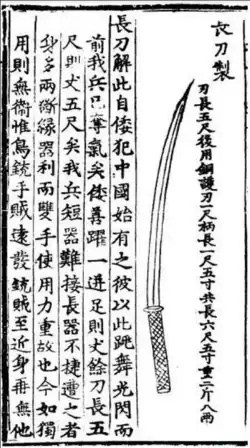 長刀製
刃長五尺後用銅護刃一尺柄長一尺五寸共長六尺五寸重二斤八兩
長刀解此自倭犯中國始有之彼以此跳舞光閃而
前我兵已奪氣矣倭善躍一迸足則丈餘刀長五
尺則丈五尺矣我兵短器難接長器不捷遭之者
身多兩斷緣器利而雙手使用力重故也今如獨
用則無衛惟鳥銃手賊遠發銃賊至近身再無他